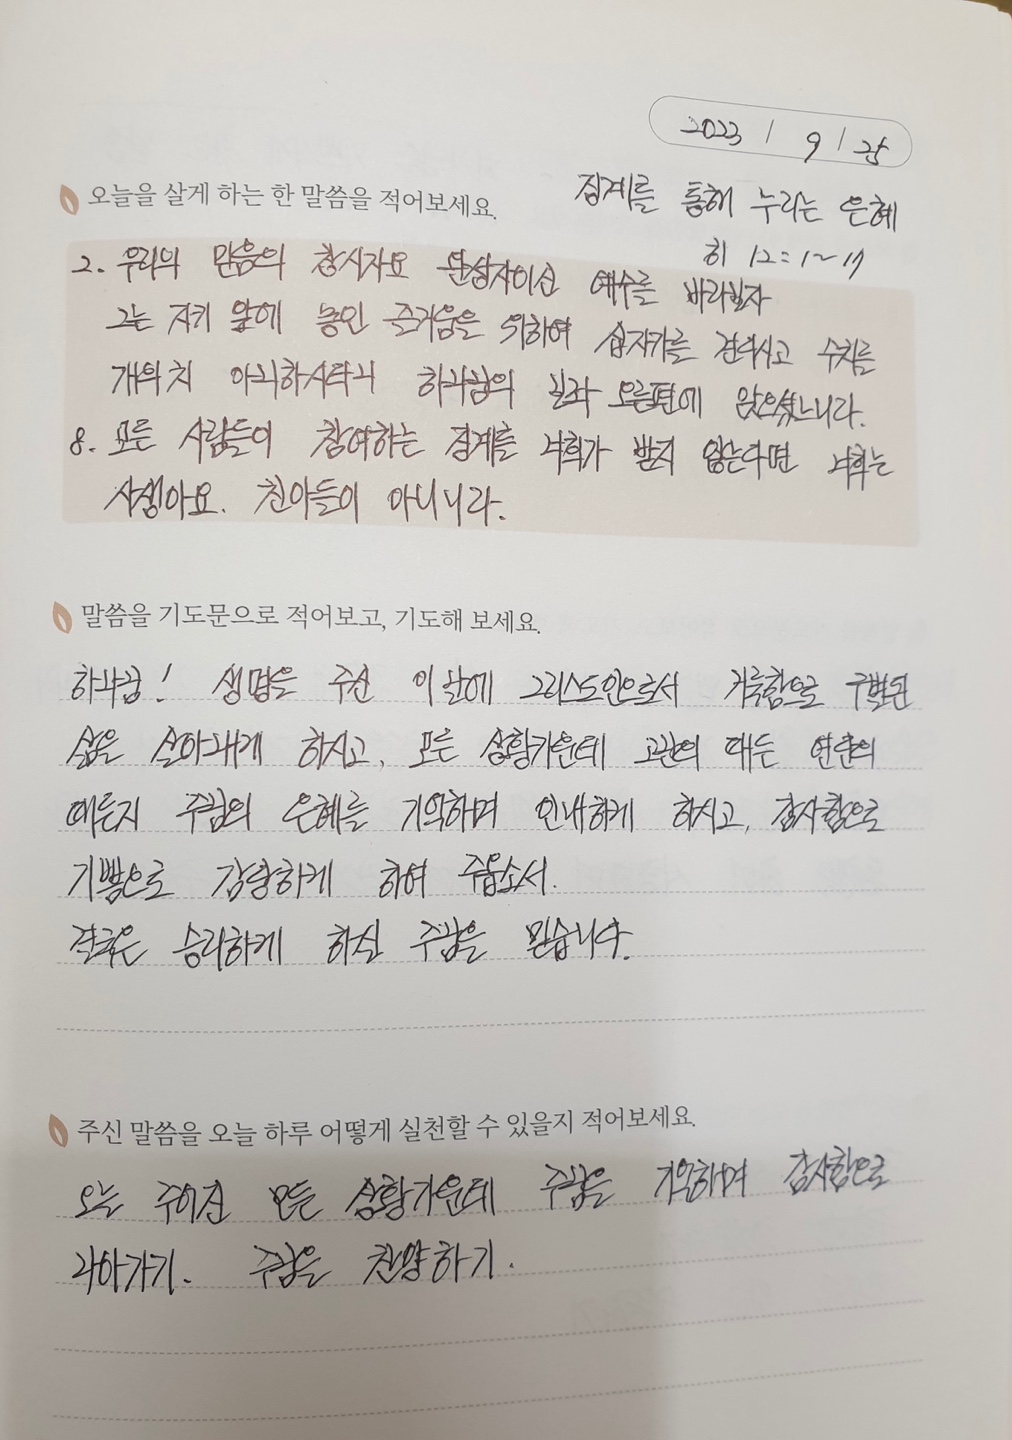 2023 / 9 / 25
오늘을 살게 하는 한 말씀을 적어보세요.
징계를 통해 누리는 은혜
히 12:1~17
2. 우리의 믿음의 창시자요 완성자이신 예수를 바라보자
그는 자기 앞에 놓인 즐거움을 위하여 십자가를 견디시고 수치를
개의치 아니하시더니 하나님의 보좌 오른편에 앉으셨느니라.
8. 모든 사람들이 참여하는 징계를 너희가 받지 않는다면 너희는
사생아요. 친아들이 아니니라.
말씀을 기도문으로 적어보고, 기도해 보세요.
하나님! 생명을 주신 이 날에 그리스도인으로서 거룩함으로 구별된
삶을 살아내게 하시고, 모든 상황가운데 고난의 때든 연단의
때든지 주님의 은혜를 기억하며 인내하게 하시고, 감사함으로
기쁨으로 감당하게 하여 주옵소서.
결국은 승리하게 하실 주님을 믿습니다.
주신 말씀을 오늘 하루 어떻게 실천할 수 있을지 적어보세요.
오늘 주어진 모든 상황가운데 주님을 기억하며 감사함으로
나아가기. 주님을 찬양하기.